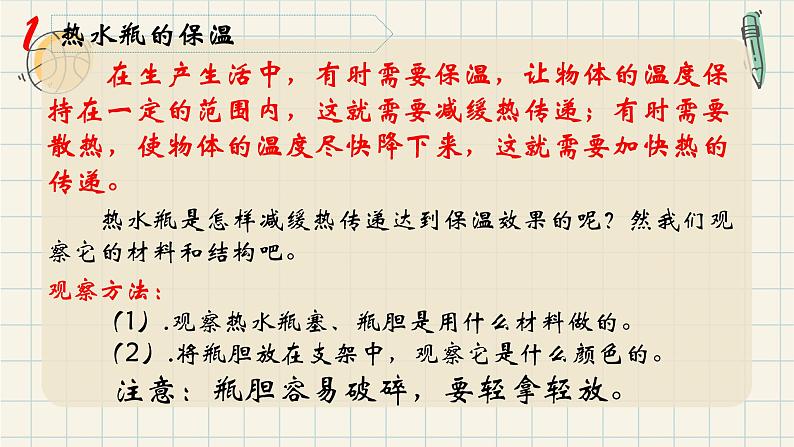 1 热水瓶的保温
在生产生活中，有时需要保温，让物体的温度保
持在一定的范围内，这就需要减缓热传递；有时需要
散热，使物体的温度尽快降下来，这就需要加快热的
传递。
热水瓶是怎样减缓热传递达到保温效果的呢？然我们观
察它的材料和结构吧。
观察方法：
（1）.观察热水瓶塞、瓶胆是用什么材料做的。
（2）.将瓶胆放在支架中，观察它是什么颜色的。
注意：瓶胆容易破碎，要轻拿轻放。